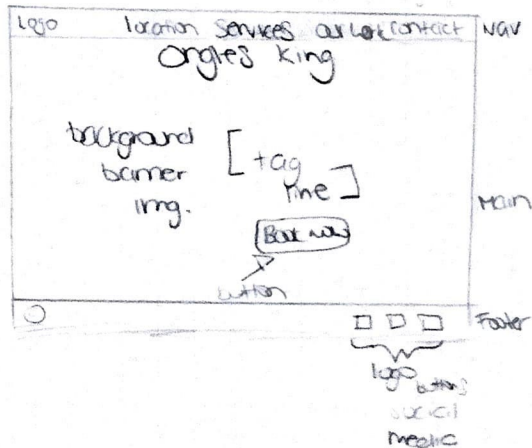 Logo location Services our work contact Nav
Ongles King
background
banner
img.
[tag
line]
Main
Book now
button
Footer
logo
buttons
social
media